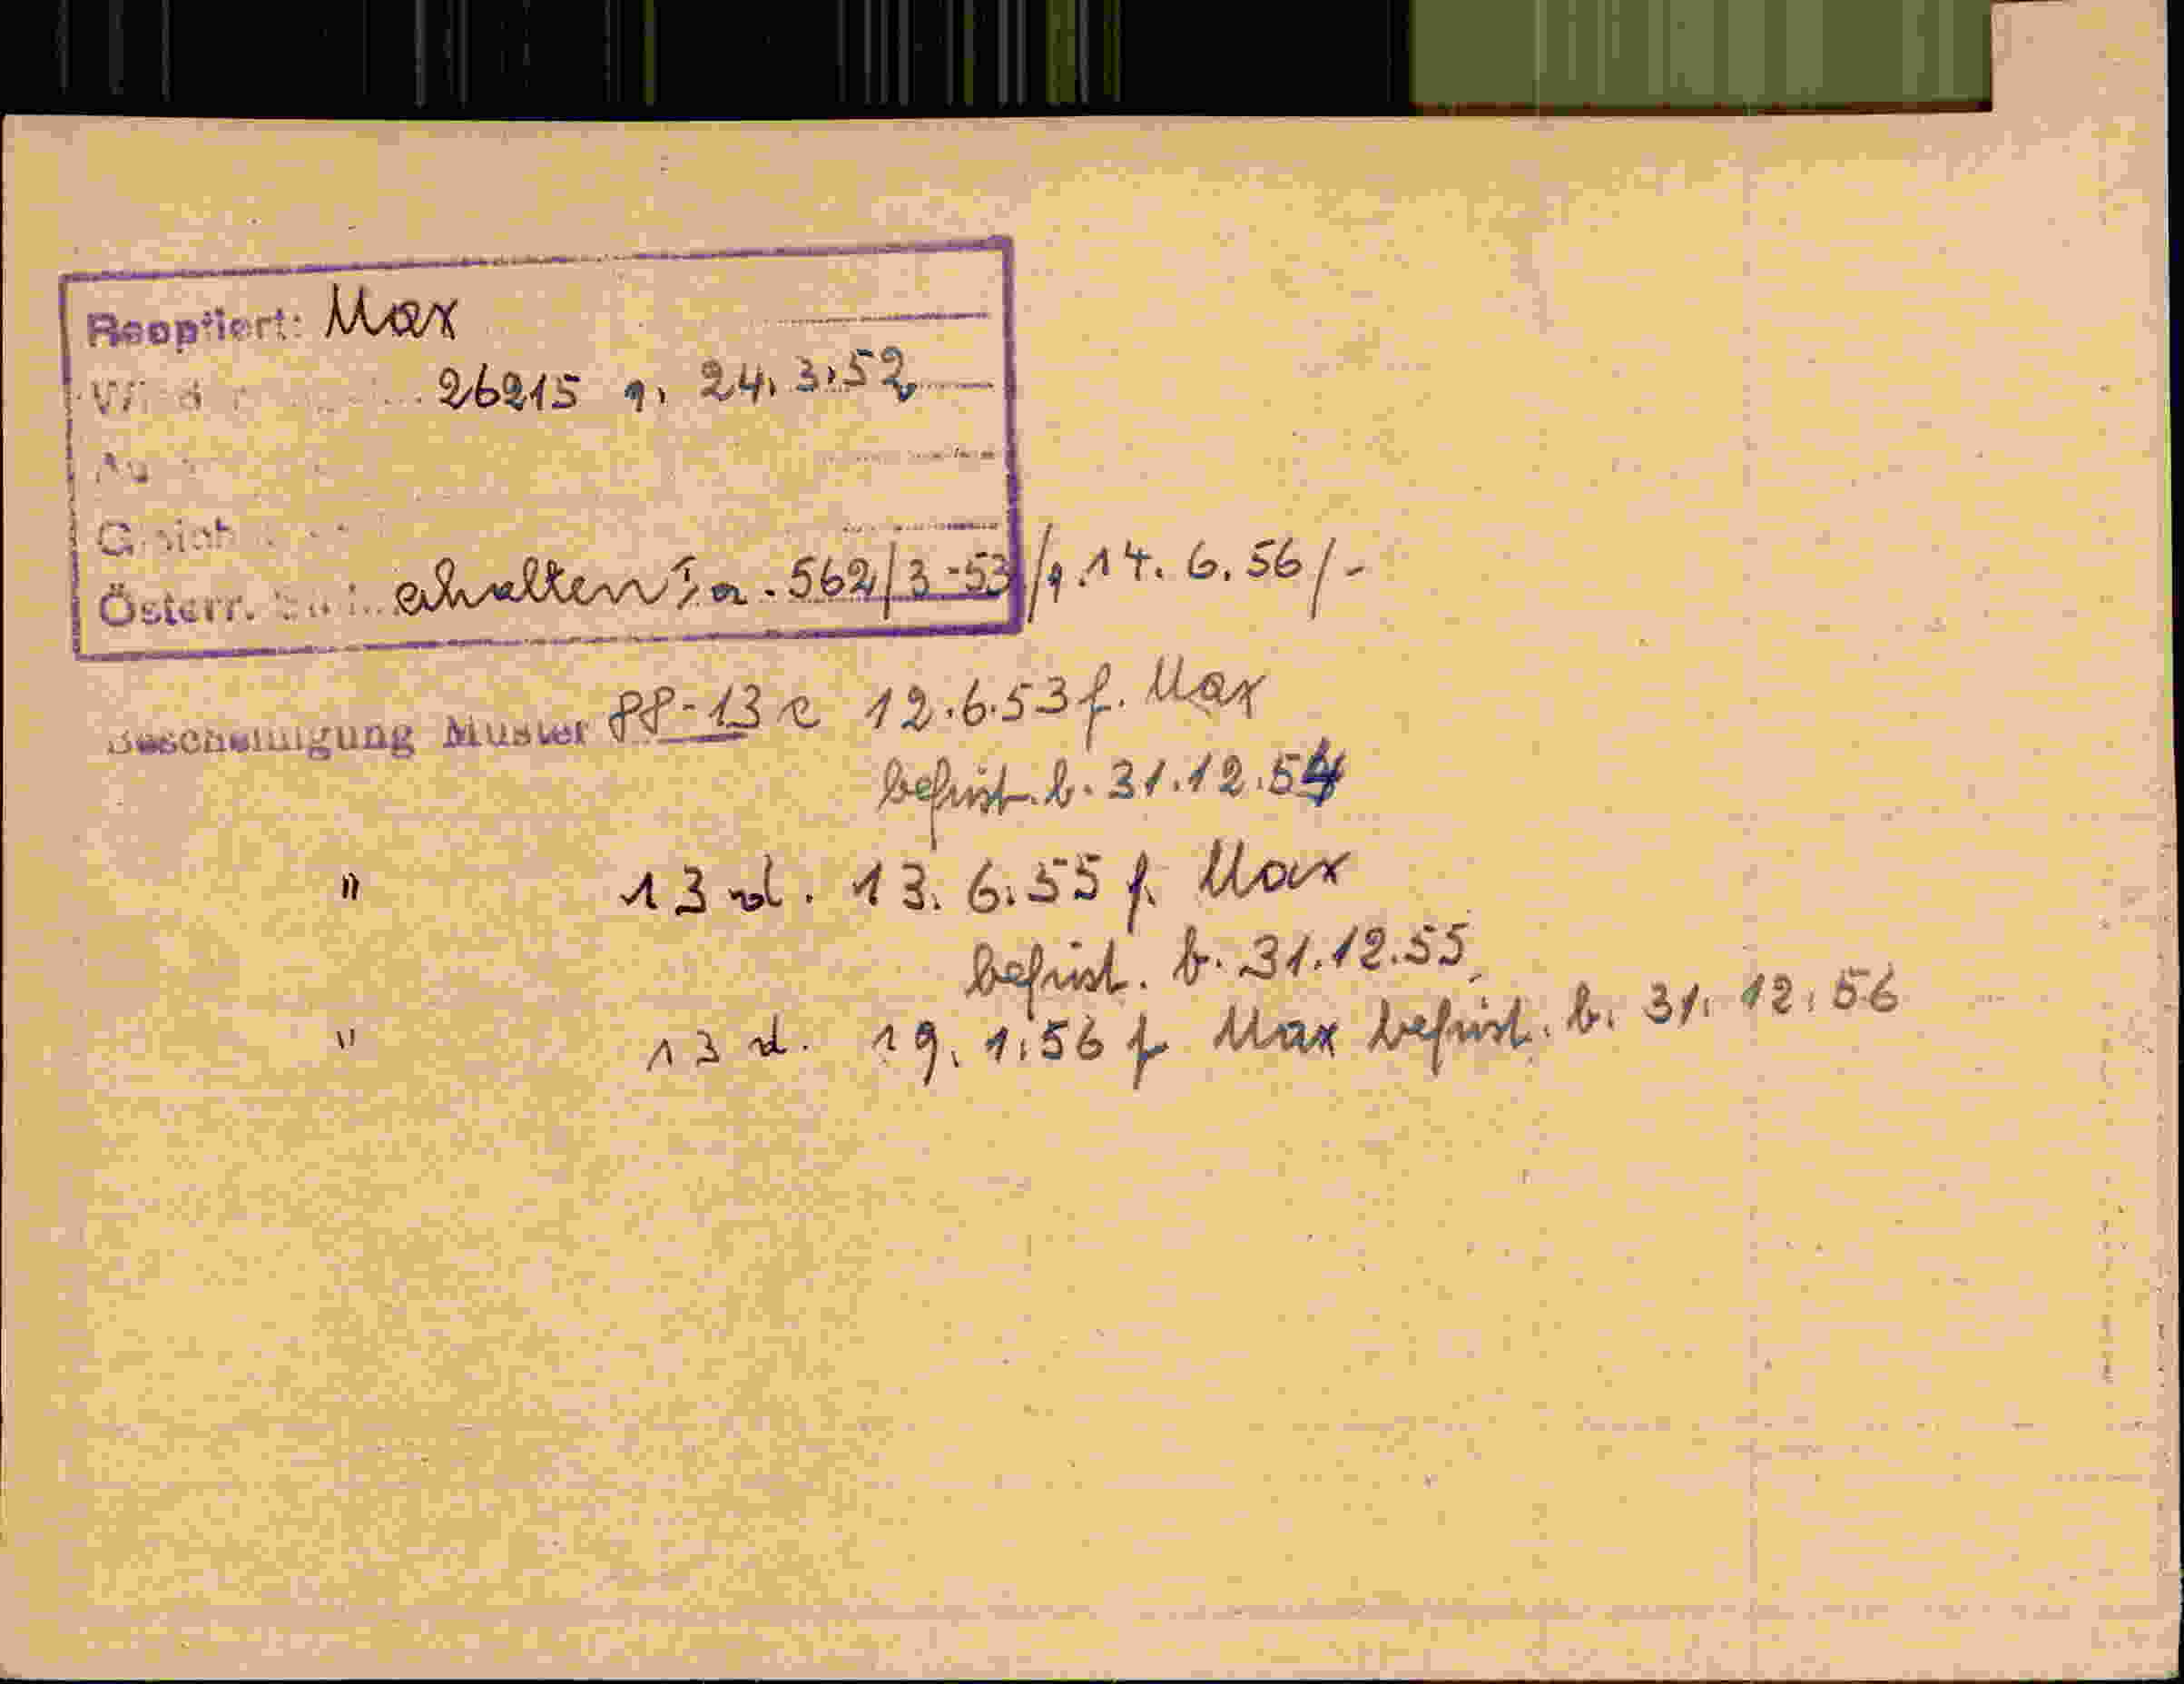 Reoptiert: Max
26215 v. 24.3.52
Österr. erhalten 562/3-53 /v. 14. 6. 56/-
Bescheinigung Muster 88-13 c 12.6.53 f. Max
befrist. b. 31.12.54
" 13 d. 13. 6. 55 f. Max
befrist. b. 31.12.55
" 13 d. 19. 1. 56 f. Max befrist. b. 31. 12. 56